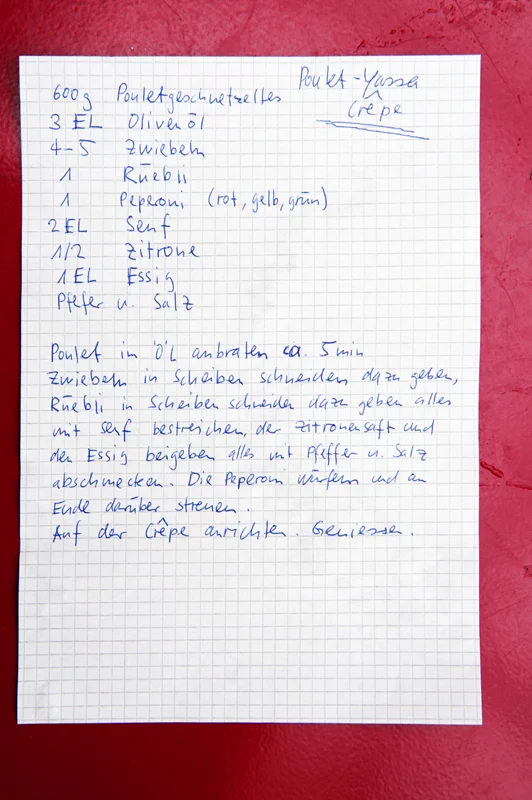 Poulet-Yassa
Crêpe
600g Pouletgeschnetzeltes
3 EL Olivenöl
4-5 Zwiebeln
1 Rüebli
1 Peperoni (rot, gelb, grün)
2 EL Senf
1/2 Zitrone
1 EL Essig
Pfefer u. Salz
Poulet im ÖL anbraten ca. 5 min
Zwiebeln in Scheiben schneiden dazu geben,
Rüebli in Scheiben schneiden dazu geben alles
mit senf bestreichen, der Zitronensaft und
den Essig beigeben alles mit Pfeffer u. Salz
abschmecken. Die Peperoni würfeln und am
Ende darüber streuen.
Auf der Crêpe anrichten. Geniessen.